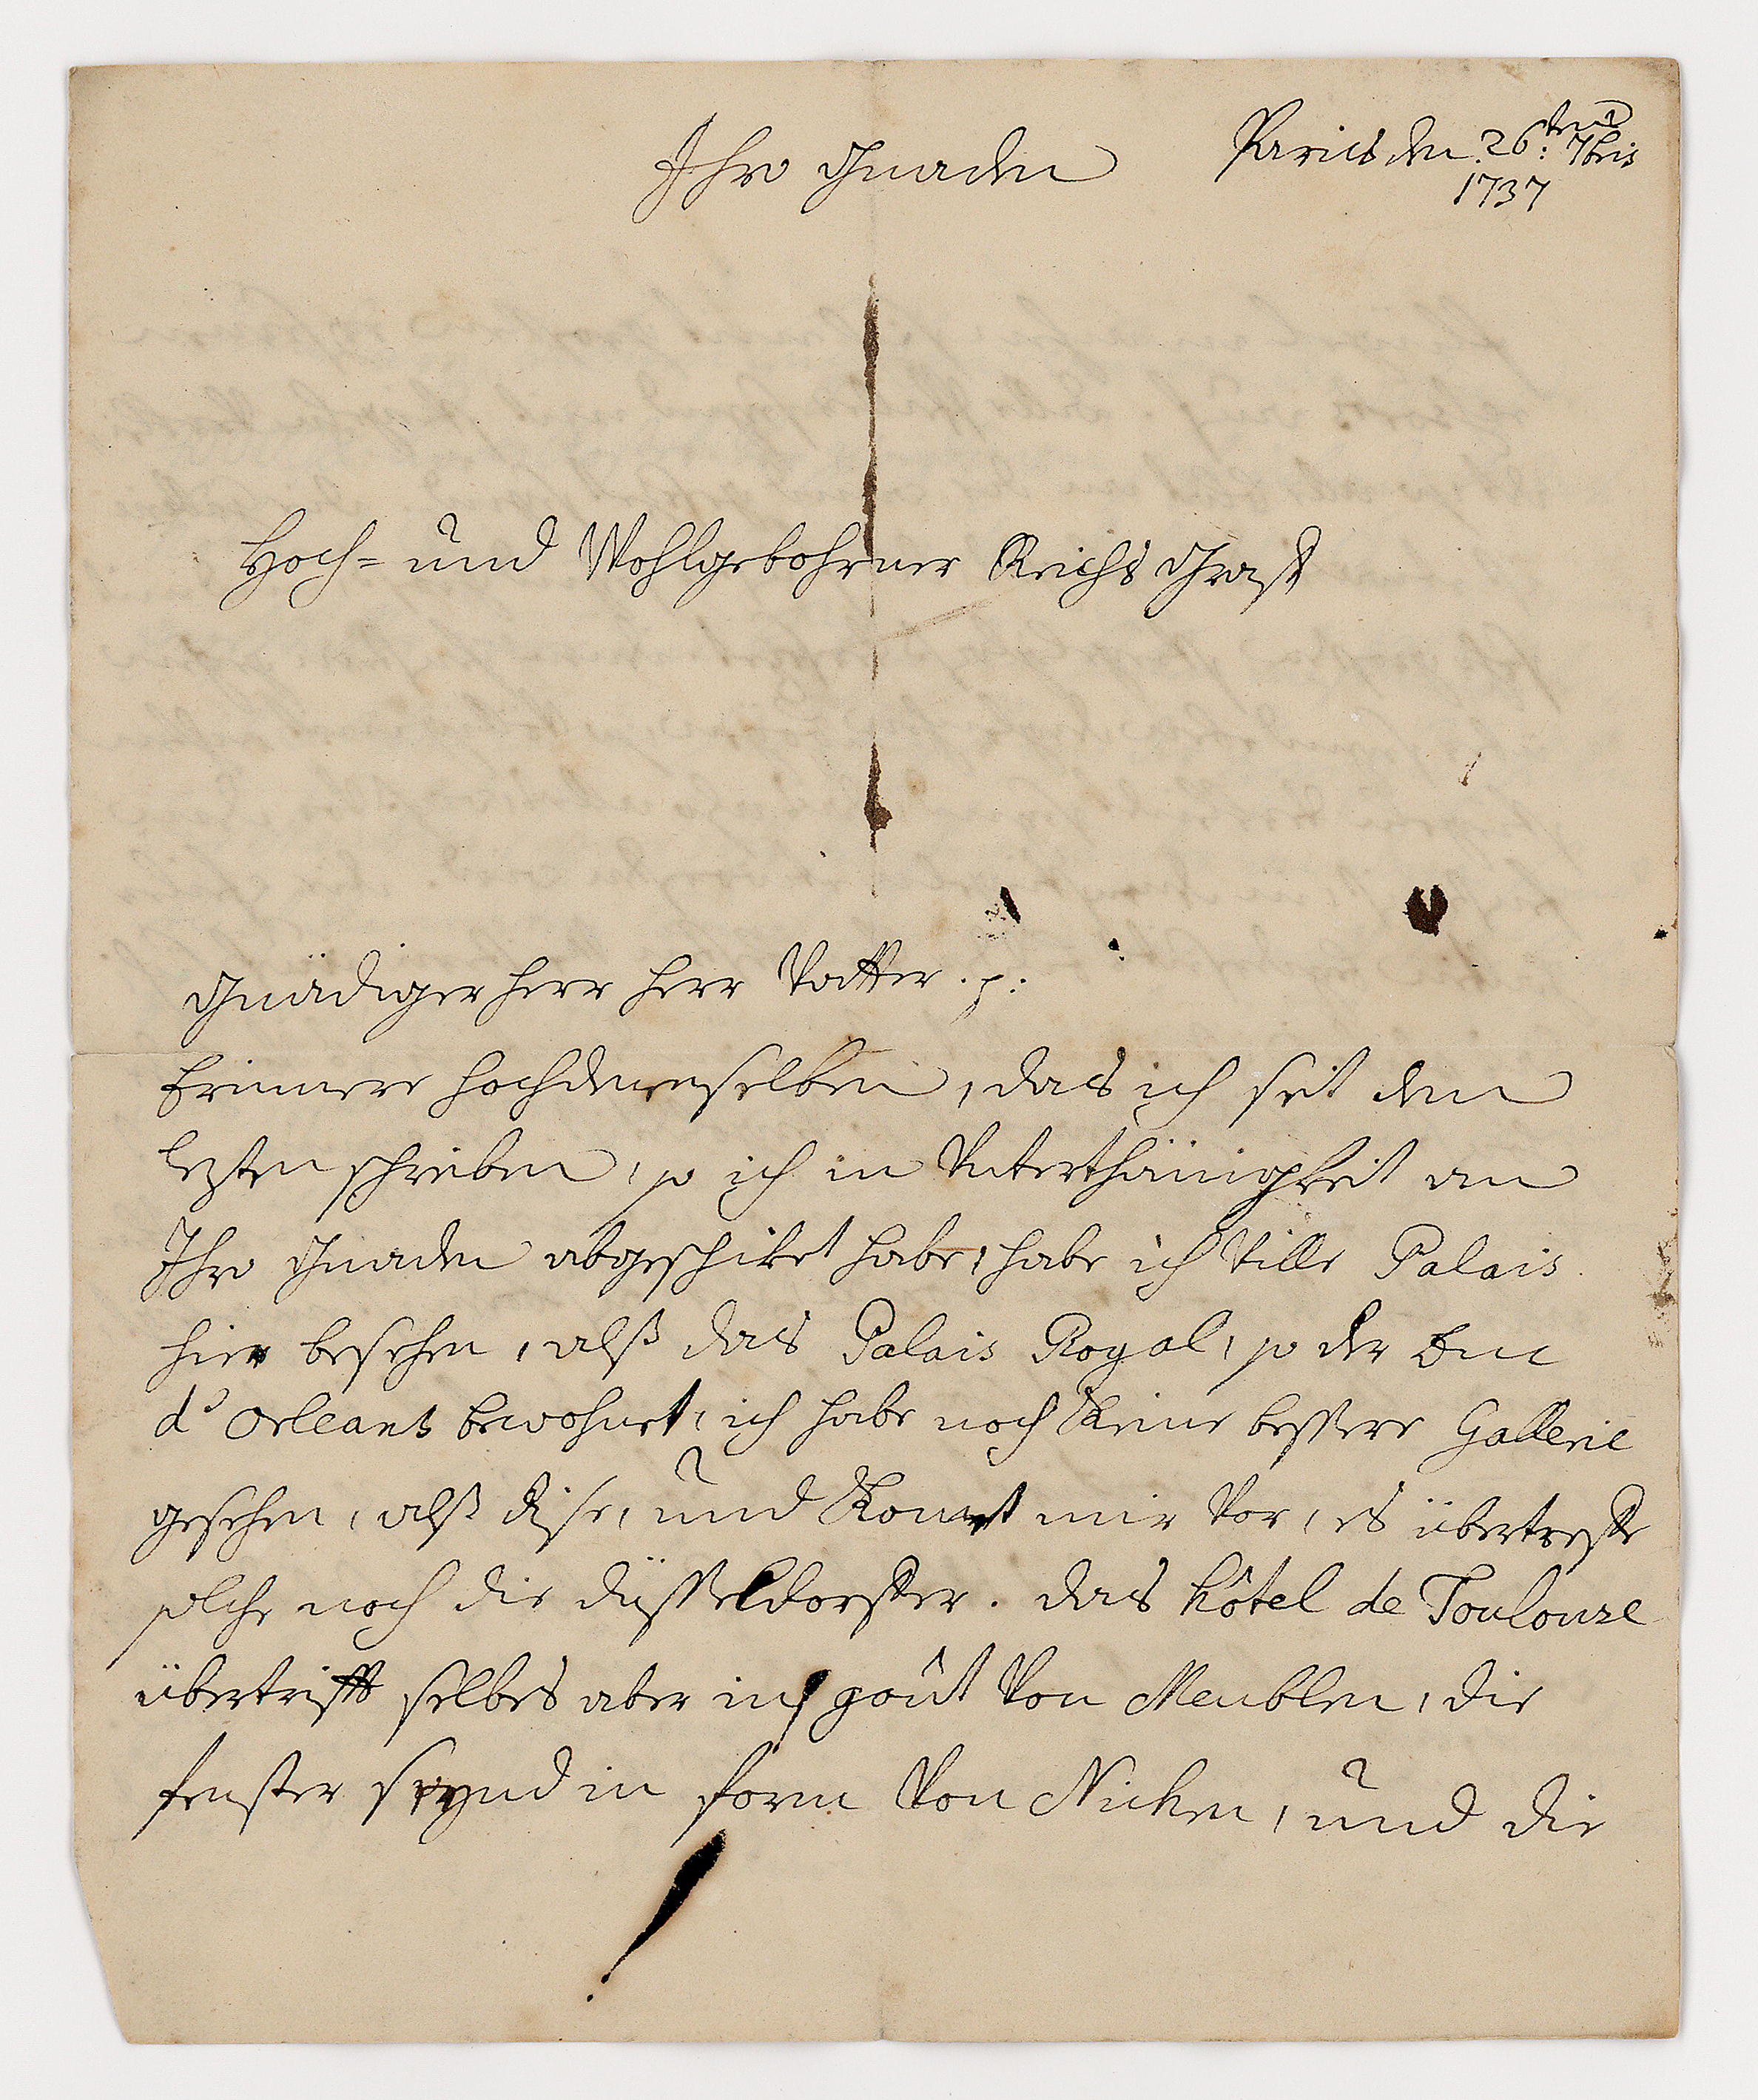 Paris den 26:ten 7bris
1737
Ihro Gnaden
Hoch= und Wohlgebohrner Reichs Graff
Gnädiger herr herr Vatter. p:
Erinnere hochdenenselben, das ich seit dem
lezten schreiben, so ich in Unterthänigkeit an
Ihro Gnaden abgeschiket habe, habe ich Ville Palais
hier besehen, alß das Palais Royal, so der Duc
d'Orleans bewohnet, ich habe noch keine bessere Gallerie
gesehen, alß dise, und komt mir vor, es übertreffe
solche noch die düsseldorffer. das hôtel de Toulouse
übertrifft selbes aber in goût von Meublen, die
fenster seynd in form von Nichen, und die